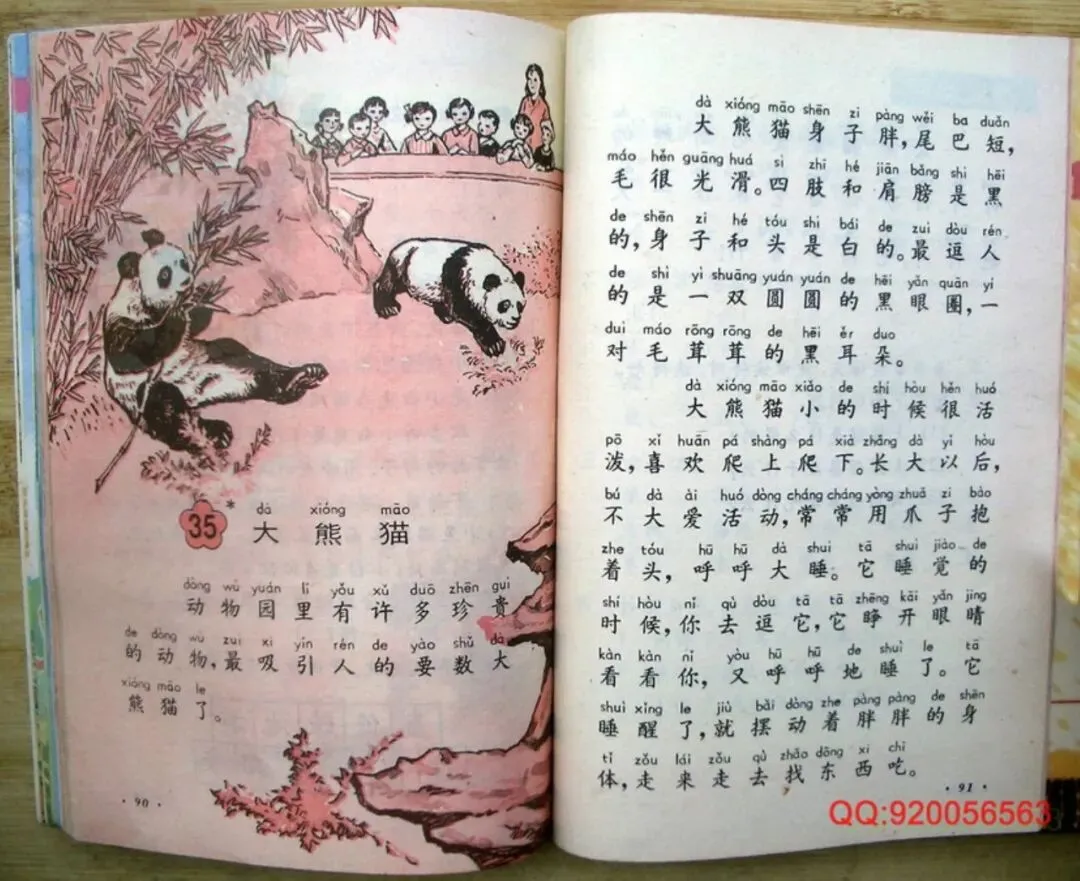 35*
dà xióng māo
大熊猫
dòng wù yuán lǐ yǒu xǔ duō zhēn guì
动物园里有许多珍贵
de dòng wù zuì xī yǐn rén de yào shǔ dà
的动物，最吸引人的要数大
xióng māo le
熊猫了。
·90·
dà xióng māo shēn zi pàng wěi ba duǎn
大熊猫身子胖，尾巴短，
máo hěn guāng huá sì zhī hé jiān bǎng shì hēi
毛很光滑。四肢和肩膀是黑
de shēn zi hé tóu shì bái de zuì dòu rén
的，身子和头是白的。最逗人
de shì yì shuāng yuán yuán de hēi yǎn quān yí
的是一双圆圆的黑眼圈，一
duì máo rōng rōng de hēi ěr duo
对毛茸茸的黑耳朵。
dà xióng māo xiǎo de shí hòu hěn huó
大熊猫小的时候很活
pō xǐ huān pá shàng pá xià zhǎng dà yǐ hòu
泼，喜欢爬上爬下。长大以后，
bú dà ài huó dòng cháng cháng yòng zhuǎ zi bào
不大爱活动，常常用爪子抱
zhe tóu hū hū dà shuì tā shuì jiào de
着头，呼呼大睡。它睡觉的
shí hòu nǐ qù dòu tā tā zhēng kāi yǎn jīng
时候，你去逗它，它睁开眼睛
kàn kàn nǐ yòu hū hū de shuì le tā
看看你，又呼呼地睡了。它
shuì xǐng le jiù bǎi dòng zhe pàng pàng de shēn
睡醒了，就摆动着胖胖的身
tǐ zǒu lái zǒu qù zhǎo dōng xi chī
体，走来走去找东西吃。
·91·
QQ:920056563